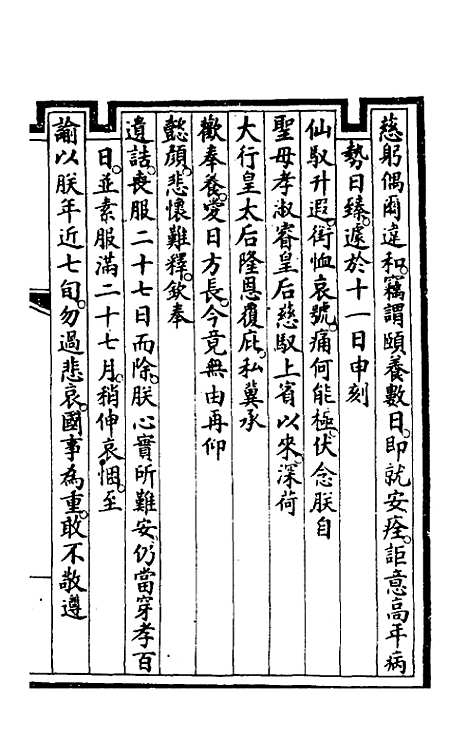 慈躬偶爾違和。竊謂頤養數日。即就安痊。詎意高年病
勢日臻。遽於十一日申刻
仙馭升遐。銜恤哀號。痛何能極。伏念朕自
聖母孝淑睿皇后慈馭上賓以來。深荷
大行皇太后隆恩覆庇。私冀承
歡奉養。愛日方長。今竟無由再仰
懿顏。悲懷難釋。欽奉
遺誥。喪服二十七日而除。朕心實所難安。仍當穿孝百
日。並素服滿二十七月。稍伸哀悃。至
諭以朕年近七旬。勿過悲哀。國事為重。敢不敬遵